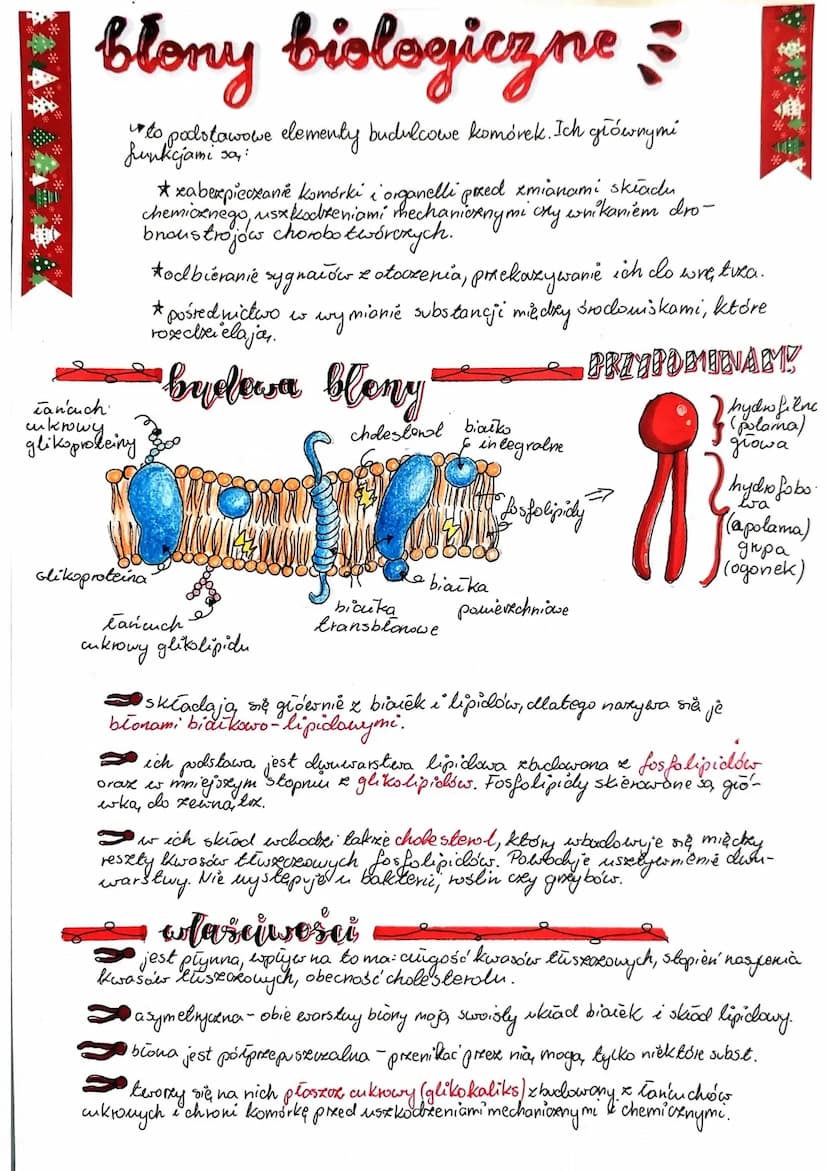 błony biologiczne
to podstawowe elementy budulcowe komórek. Ich głównymi
funkcjami są:
★ zabezpieczanie komórki i organelli przed zmianami składu
chemicznego, uszkodzeniami mechanicznymi czy wnikaniem dro-
bnoustrojów chorobotwórczych.
★ odbieranie sygnałów z otoczenia, przekazywanie ich do wnętrza.
★ pośrednictwo w wymianie substancji między środowiskami, które
rozdzielają.
budowa błony
PRZYPOMINAM!
łańcuch
cukrowy
glikoproteiny
cholesterol
białko
integralne
fosfolipidy ⇒
glikoproteina
łańcuch
cukrowy glikolipidu
białka
transbłonowe
białka
powierzchniowe
hydrofilna
(polarna)
głowa
hydrofobo-
wa
(apolarna)
grupa
(ogonek)
składają się głównie z białek i lipidów, dlatego nazywa się je
błonami białkowo-lipidowymi.
ich podstawą jest dwuwarstwa lipidowa zbudowana z fosfolipidów
oraz w mniejszym stopniu z glikolipidów. Fosfolipidy skierowane są głó-
wką do zewnątrz.
w ich skład wchodzi także cholesterol, który wbudowuje się między
reszty kwasów tłuszczowych fosfolipidów. Powoduje usztywnienie dwu-
warstwy. Nie występuje u bakterii, roślin czy grzybów.
właściwości
jest płynna, wpływ na to ma: długość kwasów tłuszczowych, stopień nasycenia
kwasów tłuszczowych, obecność cholesterolu.
asymetryczna - obie warstwy błony mają swoisty układ białek i skład lipidowy.
błona jest półprzepuszczalna - przenikać przez nią mogą tylko niektóre subst.
tworzy się na nich płaszcz cukrowy (glikokaliks) zbudowany z łańcuchów
cukrowych i chroni komórkę przed uszkodzeniami mechanicznymi i chemicznymi.